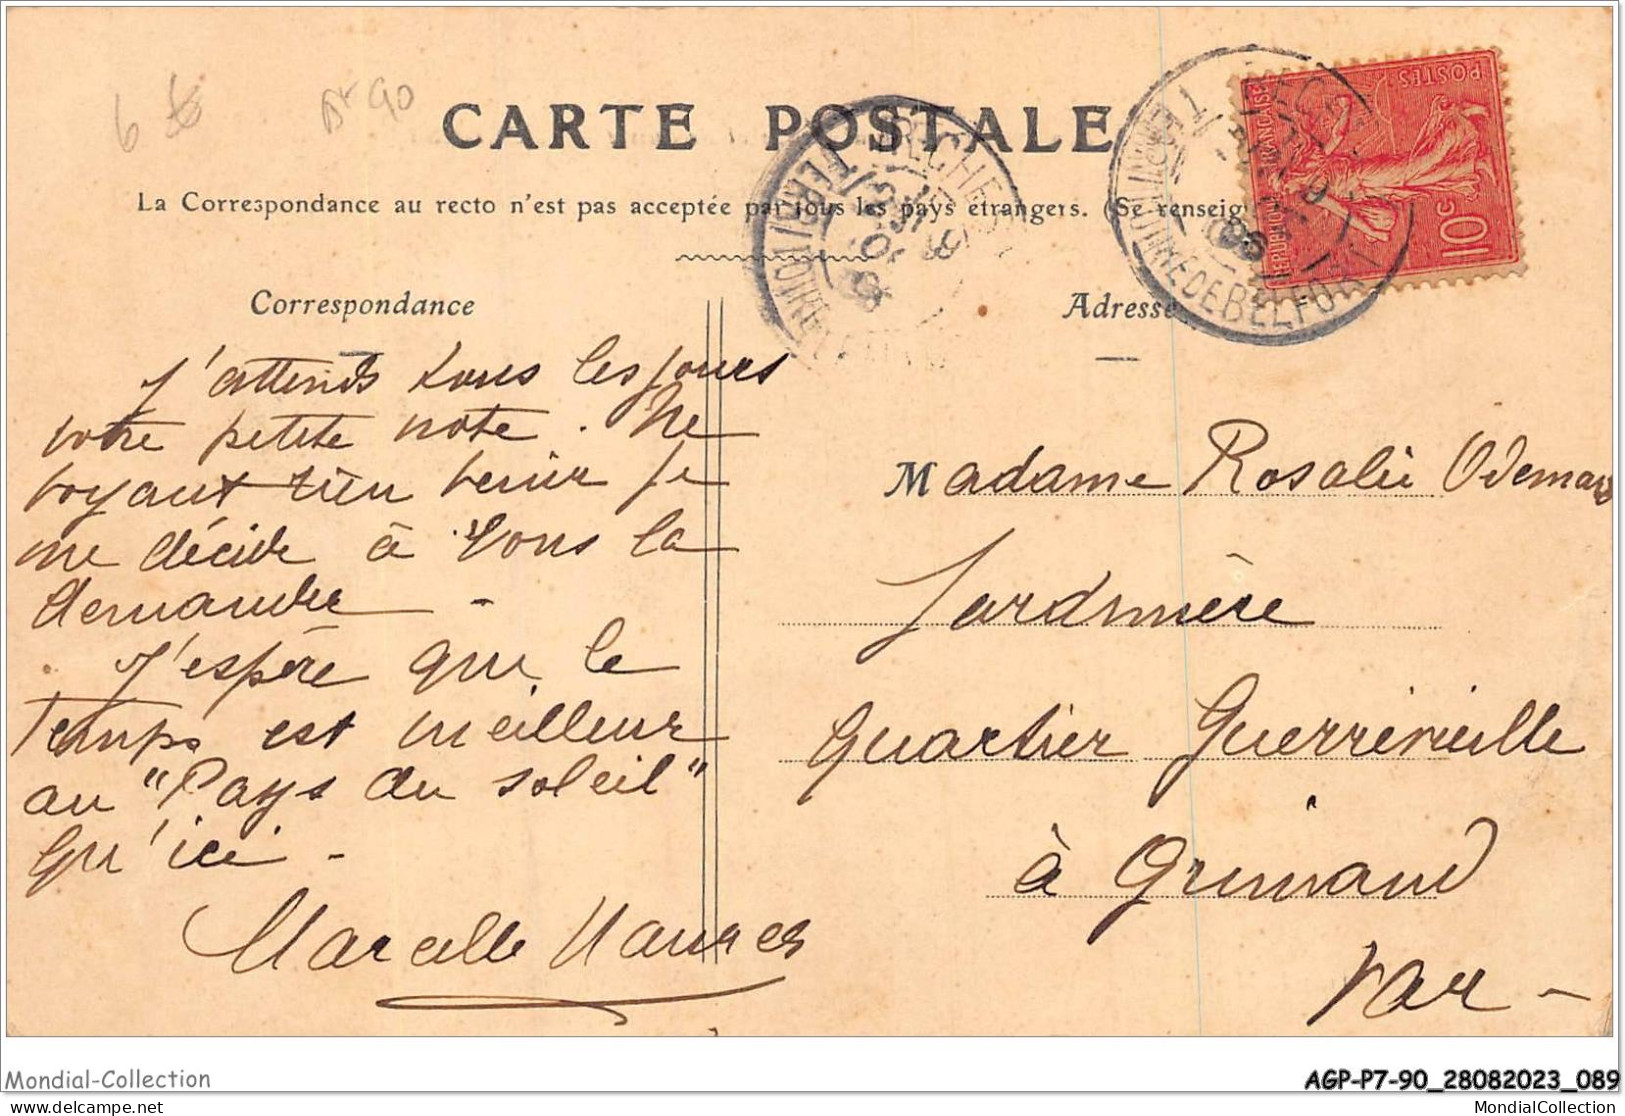 6 €
Dt 90
CARTE POSTALE
La Correspondance au recto n'est pas acceptée par tous les pays étrangers. (Se renseig
Correspondance
Adresse
POSTES
REPUBLIQUE FRANCAISE
10c
BECHE
TERRITOIRE
TERRITOIRE DE BELFORT
J'attends tous les jours
votre petite note. Ne
voyant rien venir je
me décide à vous la
demander -
J'espère que le
temps est meilleur
au "Pays du soleil"
qu'ici -
Marcelle
Madame Rosalie
Jardinière
Quartier Guerrevieille
à Grimaud
Var -
Mondial-Collection
AGP-P7-90_28082023_089
MondialCollection
MondialCollection